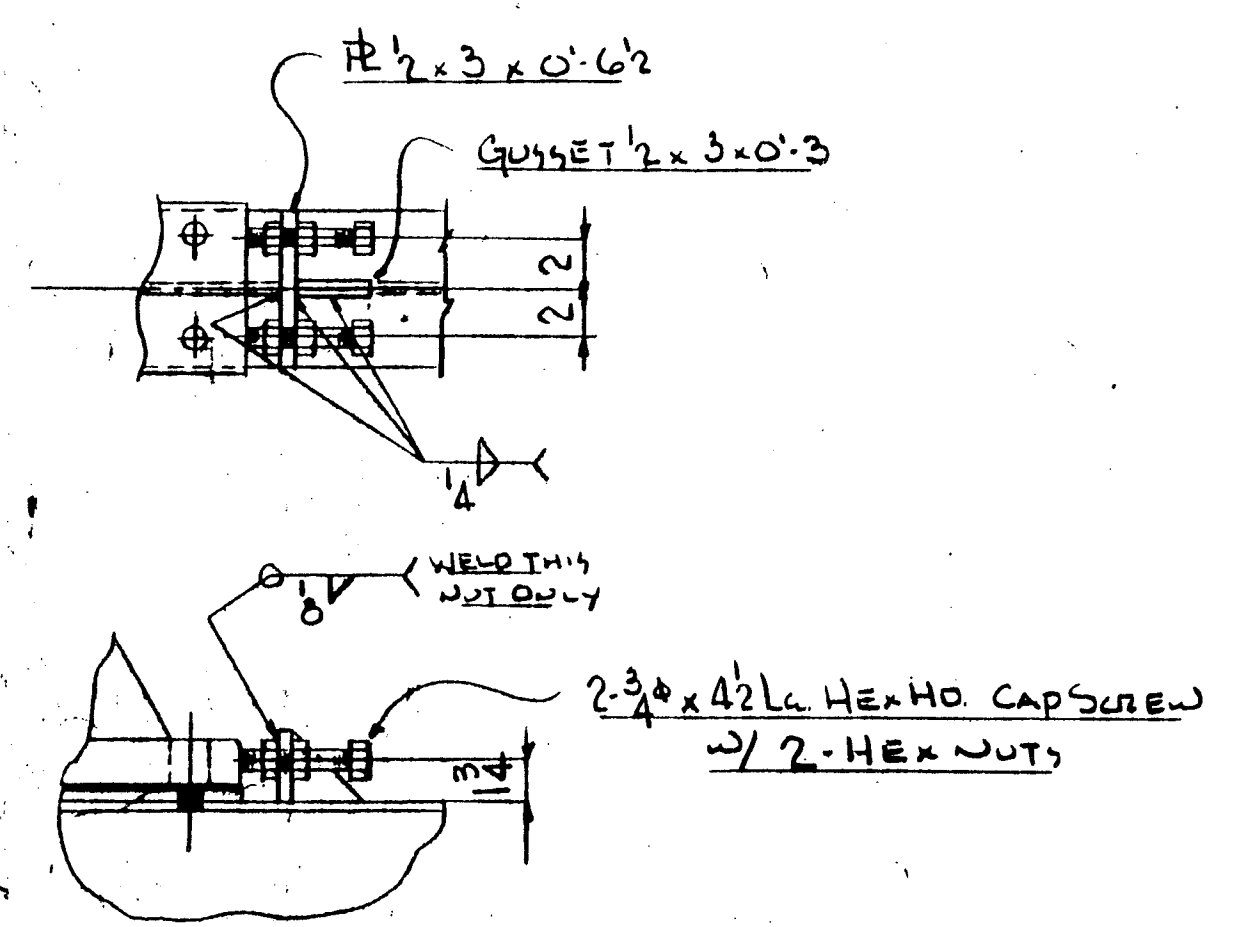 PL 1/2 x 3 x 0'-6 1/2
GUSSET 1/2 x 3 x 0'-3
2
2
1/4
1/8 WELD THIS
NUT ONLY
2-3/4 φ x 4 1/2 LG. HEX HD. CAP SCREW
W/ 2-HEX NUTS
1 3/4